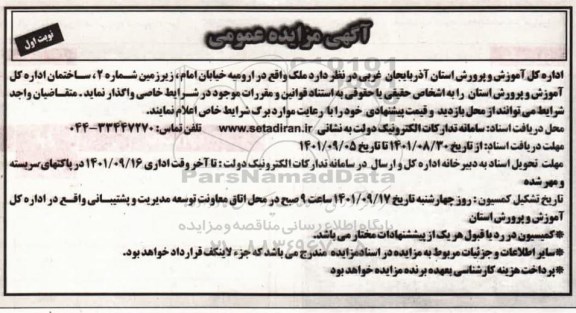 آگهی مزایده عمومی
نوبت اول
اداره کل آموزش و پرورش استان آذربایجان غربی در نظر دارد ملک واقع در ارومیه خیابان امام ، زیرزمین شماره ۲، ساختمان اداره کل
آموزش و پرورش استان را به اشخاص حقیقی یا حقوقی به استناد قوانین و مقررات موجود در شرایط خاصی واگذار نماید . متقاضیان واجد
شرایط می توانند از محل بازدید و قیمت پیشنهادی خود را با رعایت موارد برگ شرایط خاص اعلام نمایند.
محل دریافت اسناد: سامانه تدارکات الکترونیک دولت به نشانی www.setadiran.ir تلفن تماس: ۳۳۴۴۷۲۷۰-۰۴۴
مهلت دریافت اسناد: از تاریخ ۱۴۰۱/۰۸/۳۰ تا تاریخ ۱۴۰۱/۰۹/۰۵
مهلت تحویل اسناد به دبیرخانه اداره کل و ارسال در سامانه تدارکات الکترونیک دولت : تا آخر وقت اداری ۱۴۰۱/۰۹/۱۶ در پاکتهای سربسته
و مهر شده
ParsNamadData
تاریخ تشکیل کمسیون : روز چهارشنبه تاریخ ۱۴۰۱/۰۹/۱۷ ساعت ۹ صبح در محل اتاق معاونت توسعه مدیریت و پشتیبانی واقع در اداره کل
آموزش و پرورش استان
پایگاه اطلاع رسانی مناقصه و مزایده
*کمیسیون در رد یا قبول هر یک از پیشنهادات مختار می باشد.
*سایر اطلاعات و جزئیات مربوط به مزایده در اسناد مزایده مندرج می باشد که جزء لاینفک قرارداد خواهد بود.
*پرداخت هزینه کارشناسی بعهده برنده مزایده خواهد بود